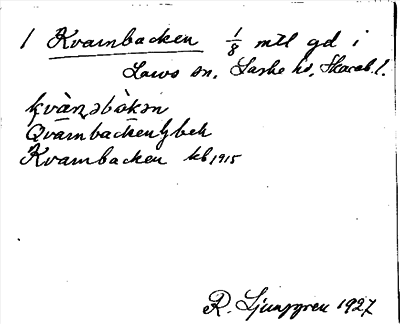 1 Kvarnbacken 1/8 mtl gd i
sn, Laske hd, Skarab. l.
kvà̄ṇəbàkən
Qvarnbacken
Kvarnbacken kb 1915
R. Ljunggren 1927